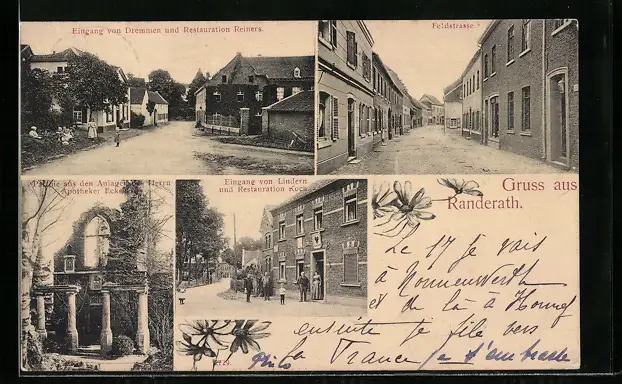 Eingang von Dremmen und Restauration Reiners.
Feldstrasse.
Partie aus den Anlagen des Herrn
Apotheker Eck
Eingang von Lindern
und Restauration Kock
Gruss aus
Randerath.
Le 17 je vais
à Nonnenwerth
et de là à Honnef
ensuite je file vers
la France je t'embrasse